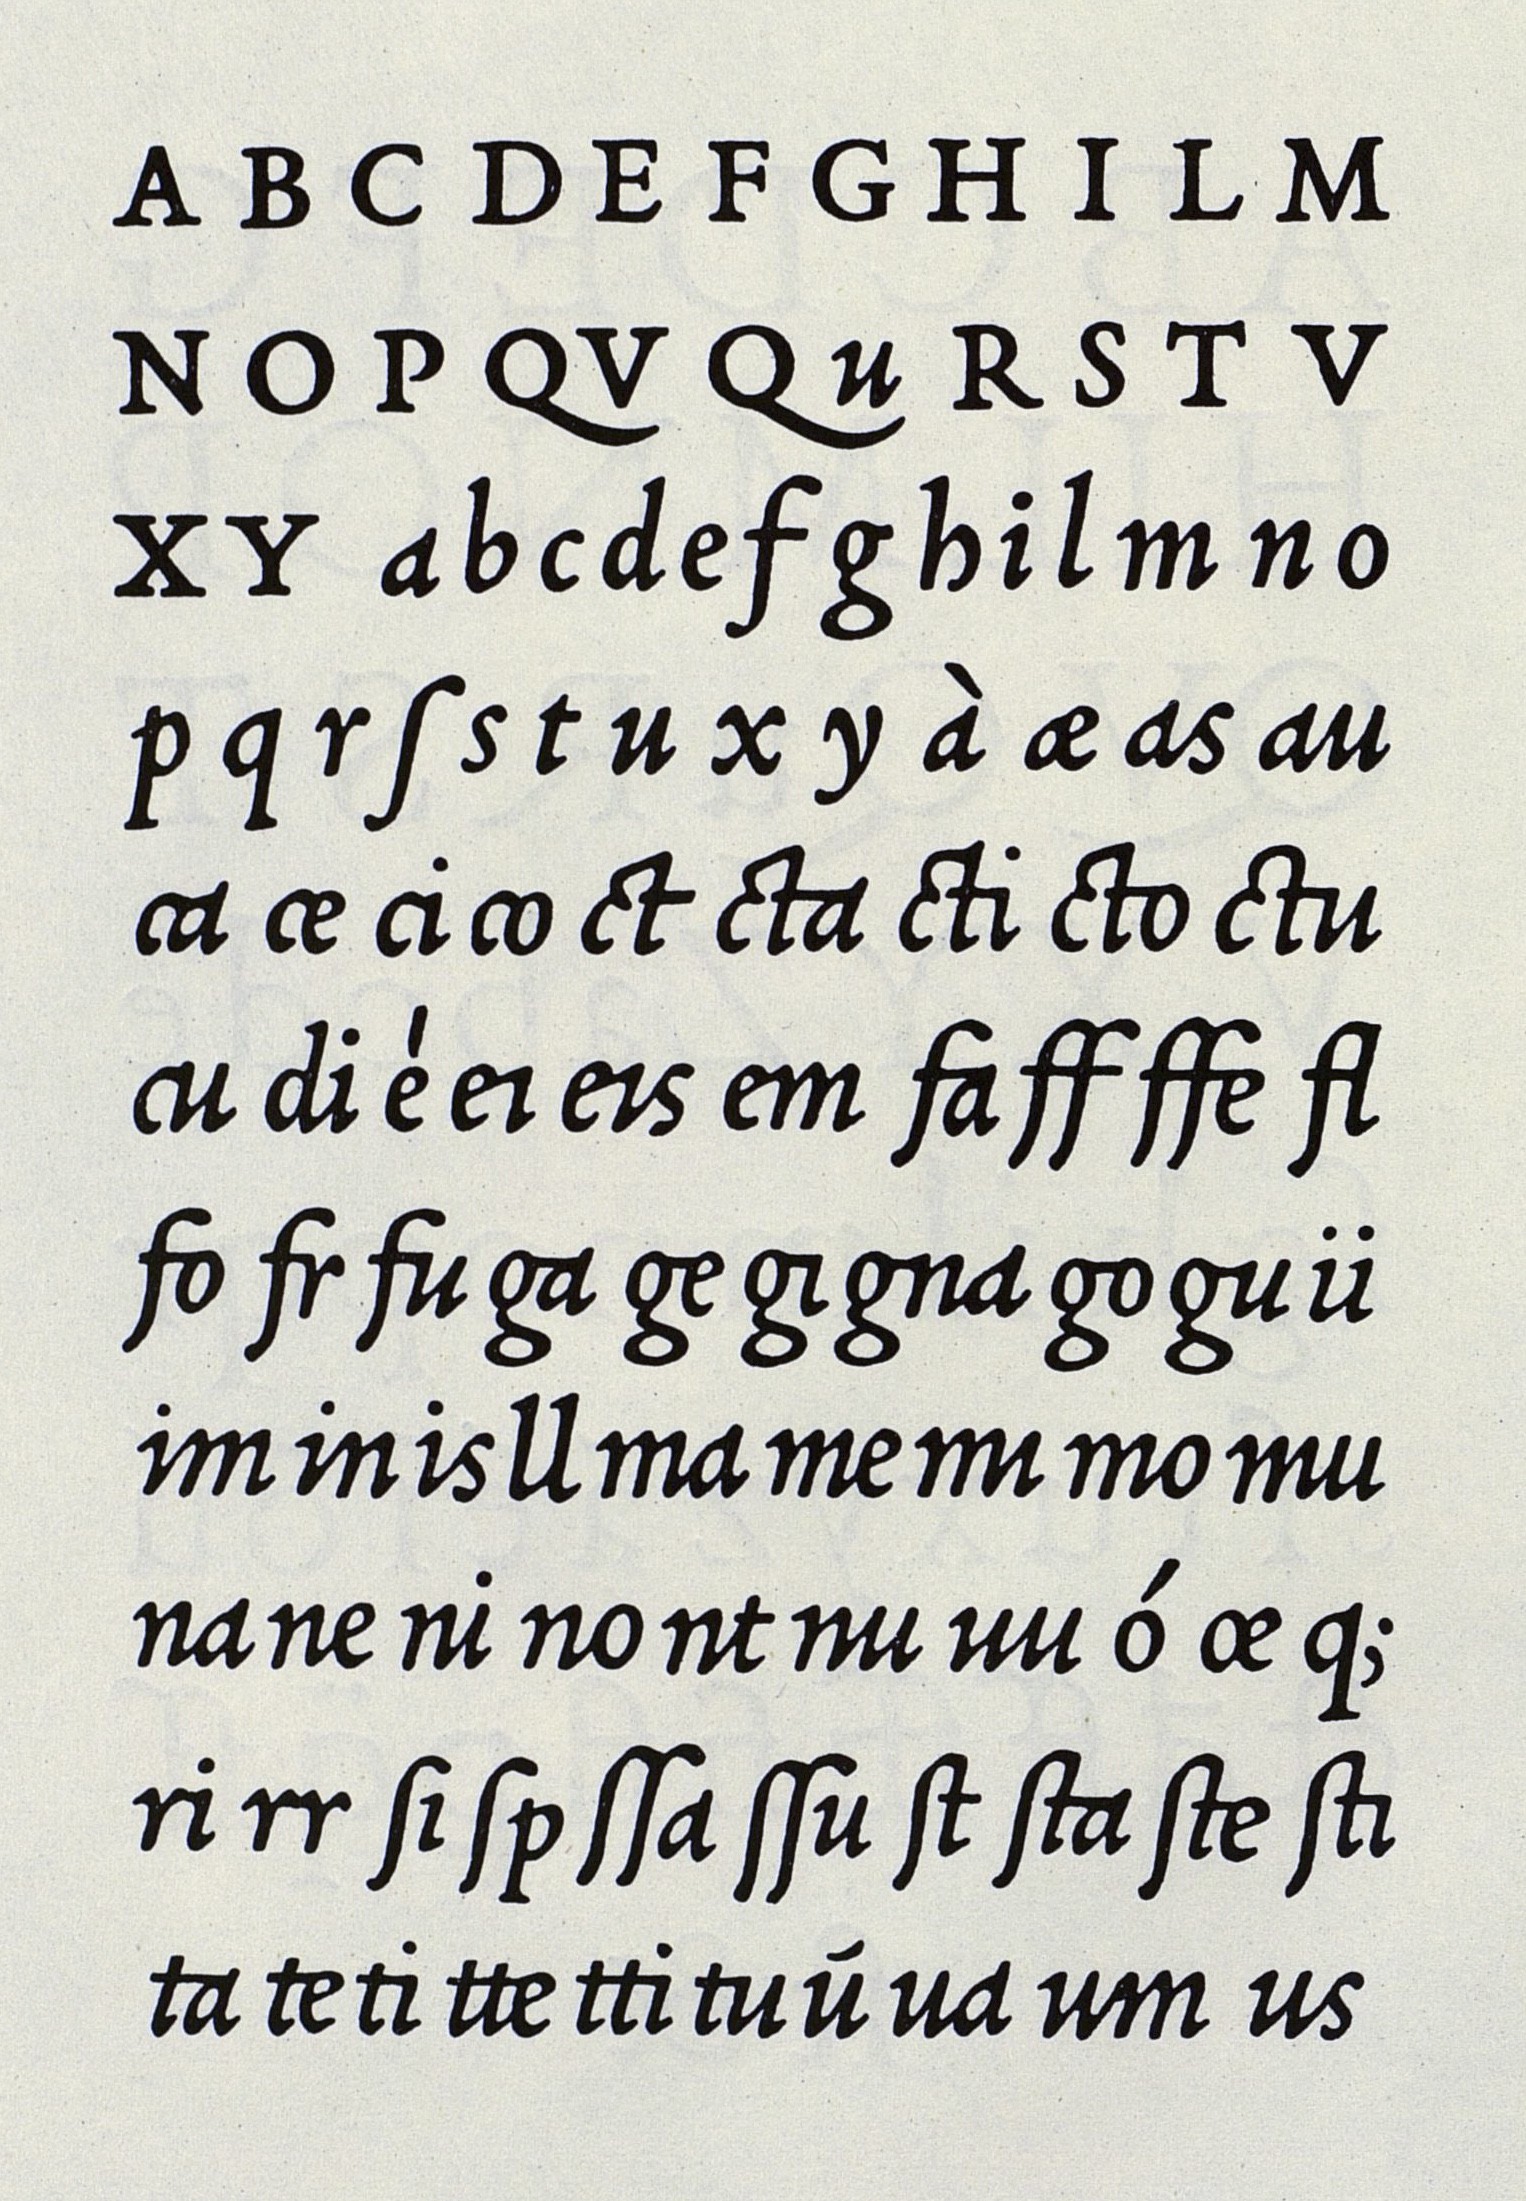 A B C D E F G H I L M
N O P QV Qu R S T V
X Y a b c d e f g h i l m n o
p q r ſ s t u x y à æ as au
ca ce ci co ct cta cti cto ctu
cu di é eı eıs em fa ff ffe fl
fo fr fu ga ge gı gna go gu ii
im in is ll ma me mı mo mu
na ne ni no nt nu uu ó œ q;
ri rr ſı ſp ſſa ſſu ſt ſta ſte ſtı
ta te ti tte tti tu ū ua um us